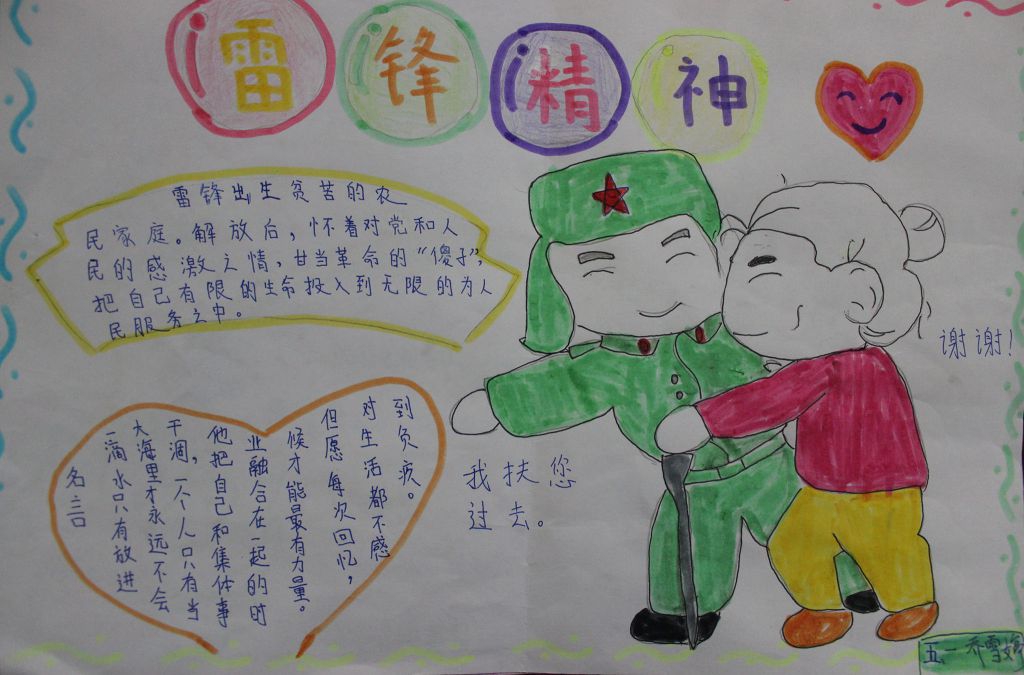 雷锋精神
雷锋出生贫苦的农
民家庭。解放后，怀着对党和人
民的感激之情，甘当革命的“傻子”，
把自己有限的生命投入到无限的为人
民服务之中。
谢谢！
我扶您
过去。
名言
一滴水只有放进
大海里才永远不会
干涸，一个人只有当
他把自己和集体事
业融合在一起的时
候才能最有力量。
但愿每次回忆，
对生活都不感
到负疚。
五一 乔雪